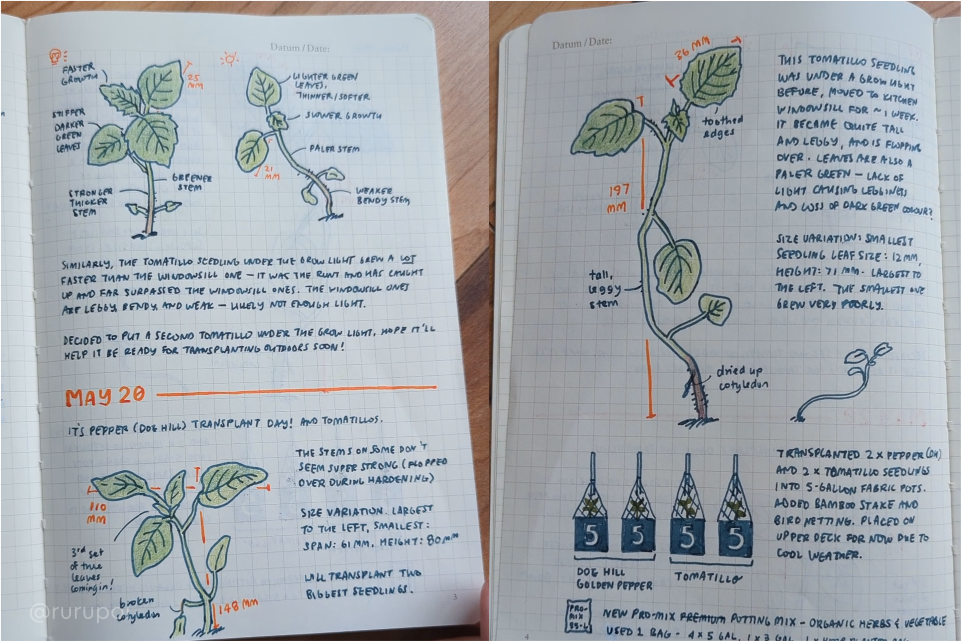 Datum / Date:
FASTER
GROWTH
25
MM
STIFFER
DARKER
GREEN
LEAVES
GREENER
STEM
STRONGER
THICKER
STEM
LIGHTER GREEN
LEAVES,
THINNER/SOFTER
SLOWER GROWTH
PALER STEM
21
MM
WEAKER
BENDY STEM
SIMILARLY, THE TOMATILLO SEEDLING UNDER THE GROW LIGHT GREW A LOT
FASTER THAN THE WINDOWSILL ONE – IT WAS THE RUNT AND HAS CAUGHT
UP AND FAR SURPASSED THE WINDOWSILL ONES. THE WINDOWSILL ONES
ARE LEGGY, BENDY AND WEAK – LIKELY NOT ENOUGH LIGHT.
DECIDED TO PUT A SECOND TOMATILLO UNDER THE GROW LIGHT. HOPE IT'LL
HELP IT BE READY FOR TRANSPLANTING OUTDOORS SOON!
MAY 20
IT'S PEPPER (DOG HILL) TRANSPLANT DAY! AND TOMATILLOS.
THE STEMS ON SOME DON'T
SEEM SUPER STRONG (FLOPPED
OVER DURING HARDENING)
SIZE VARIATION. LARGEST
TO THE LEFT, SMALLEST:
SPAN: 61MM. HEIGHT: 80MM
WILL TRANSPLANT TWO
BIGGEST SEEDLINGS.
110
MM
3rd set
of true
leaves
coming in!
broken
cotyledon
148 MM
3
@rurupo
Datum / Date:
36 MM
toothed
edges
197
MM
tall,
leggy
stem
dried up
cotyledon
THIS TOMATILLO SEEDLING
WAS UNDER A GROW LIGHT
BEFORE, MOVED TO KITCHEN
WINDOWSILL FOR ~1 WEEK.
IT BECAME QUITE TALL
AND LEGGY, AND IS FLOPPING
OVER. LEAVES ARE ALSO A
PALER GREEN – LACK OF
LIGHT CAUSING LEGGINESS
AND LOSS OF DARK GREEN COLOUR?
SIZE VARIATION: SMALLEST
SEEDLING LEAF SIZE: 12MM,
HEIGHT: 71 MM. LARGEST TO
THE LEFT. THE SMALLEST ONE
GREW VERY POORLY.
5 5 5 5
DOG HILL
GOLDEN PEPPER
TOMATILLO
TRANSPLANTED 2 X PEPPER (DH)
AND 2 X TOMATILLO SEEDLINGS
INTO 5-GALLON FABRIC POTS.
ADDED BAMBOO STAKE AND
BIRD NETTING. PLACED ON
UPPER DECK FOR NOW DUE TO
COOL WEATHER.
PRO-
MIX
NEW PRO-MIX PREMIUM POTTING MIX – ORGANIC HERBS & VEGETABLE
USED 1 BAG – 4 X 5 GAL, 1 X 3 GAL,
4